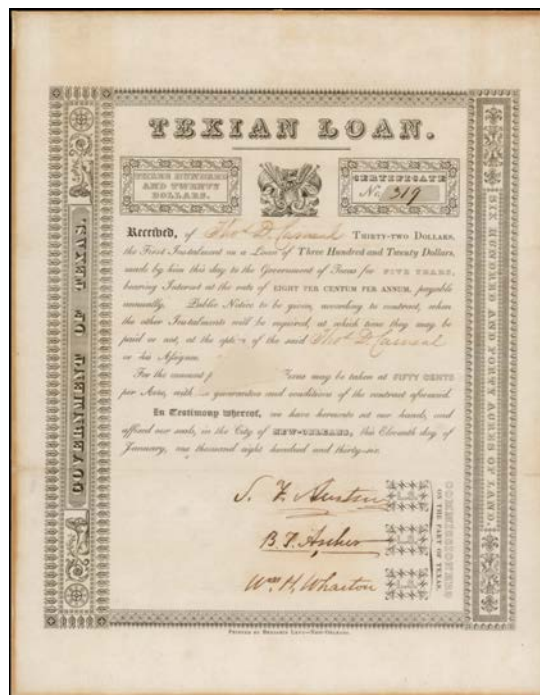 TEXIAN LOAN.
THREE HUNDRED
AND TWENTY
DOLLARS.
CERTIFICATE
No. 319
Received, of Thos D. Carneal THIRTY-TWO DOLLARS,
the First Instalment on a Loan of Three Hundred and Twenty Dollars,
made by him this day to the Government of Texas for FIVE YEARS,
bearing Interest at the rate of EIGHT PER CENTUM PER ANNUM, payable
annually. Public Notice to be given, according to contract, when
the other Instalments will be required, at which time they may be
paid or not, at the option of the said Thos D. Carneal
or his Assigns.
For the amount may be taken at FIFTY CENTS
per Acre, with guarantees and conditions of the contract aforesaid.
In Testimony whereof, we have hereunto set our hands, and
affixed our seals, in the City of NEW-ORLEANS, this Eleventh day of
January, one thousand eight hundred and thirty-six.
S. F. Austin
B. T. Archer
Wm. H. Wharton
COMMISSIONERS
ON THE PART OF TEXAS.
GOVERNMENT OF TEXAS.
SIX HUNDRED AND FORTY ACRES OF LAND.
PRINTED BY BENJAMIN LEVY—NEW-ORLEANS.